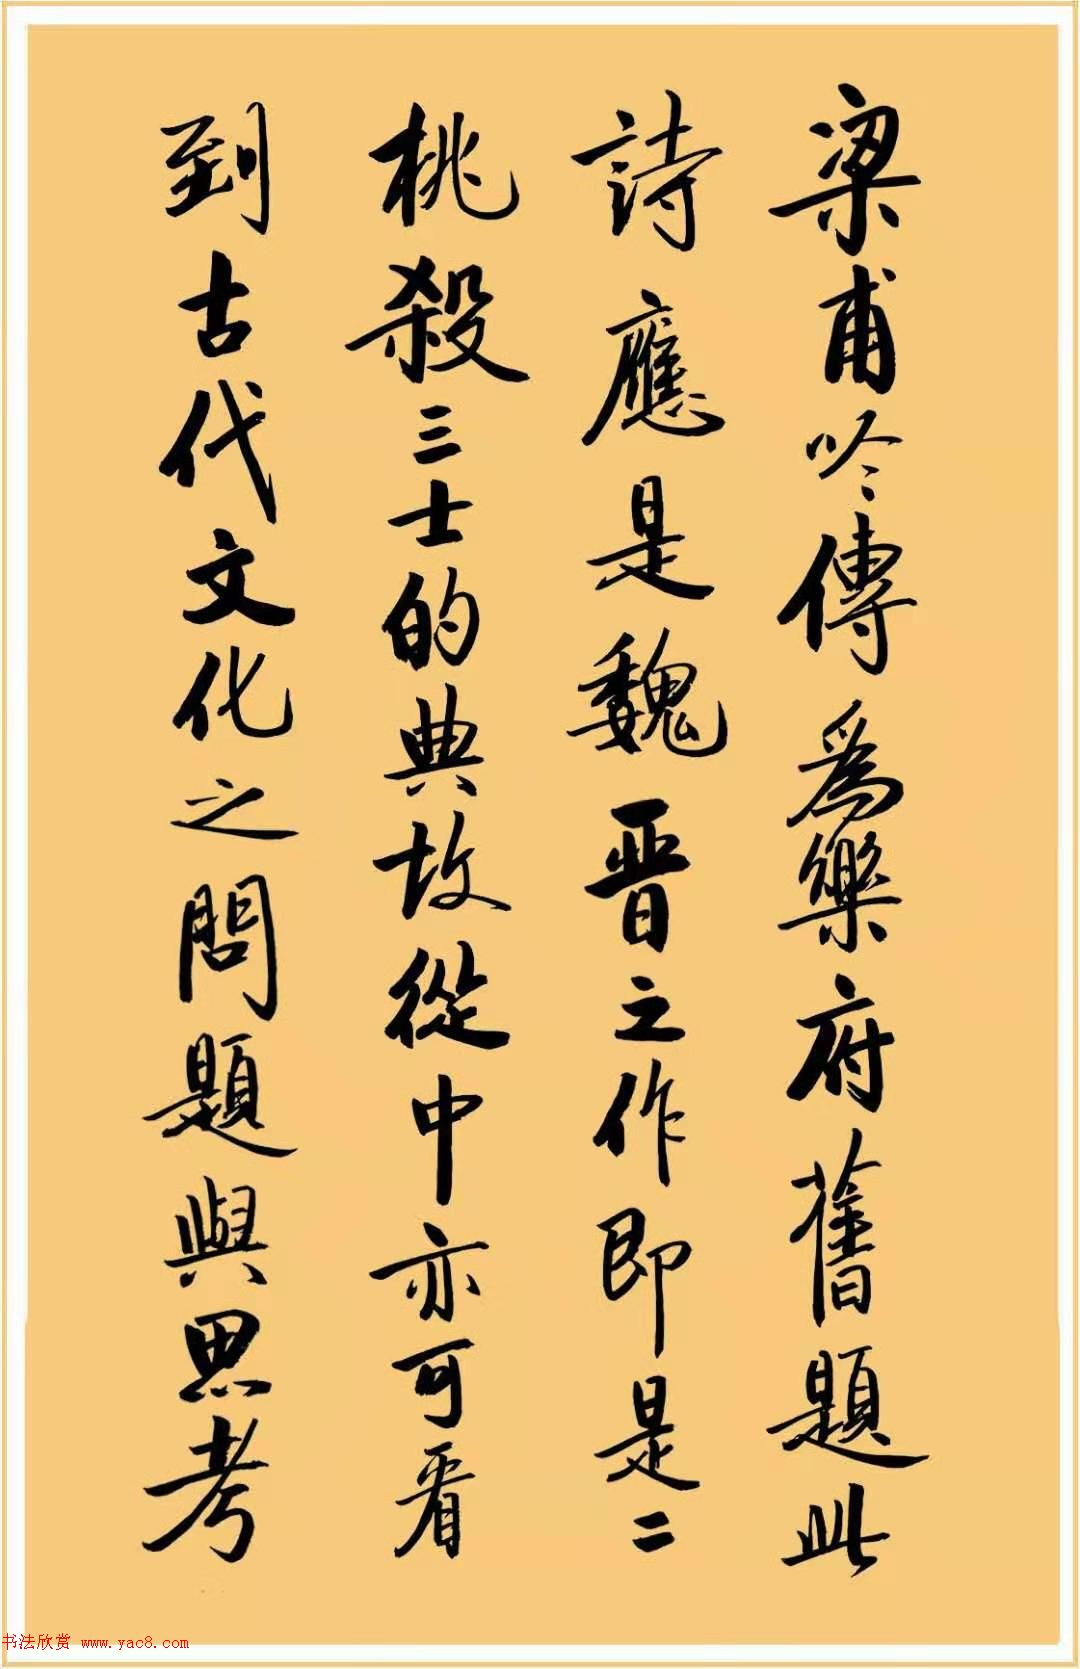 梁甫吟傳爲樂府舊題此
詩應是魏晉之作即是二
桃殺三士的典故從中亦可看
到古代文化之問題與思考
书法欣赏 www.yac8.com